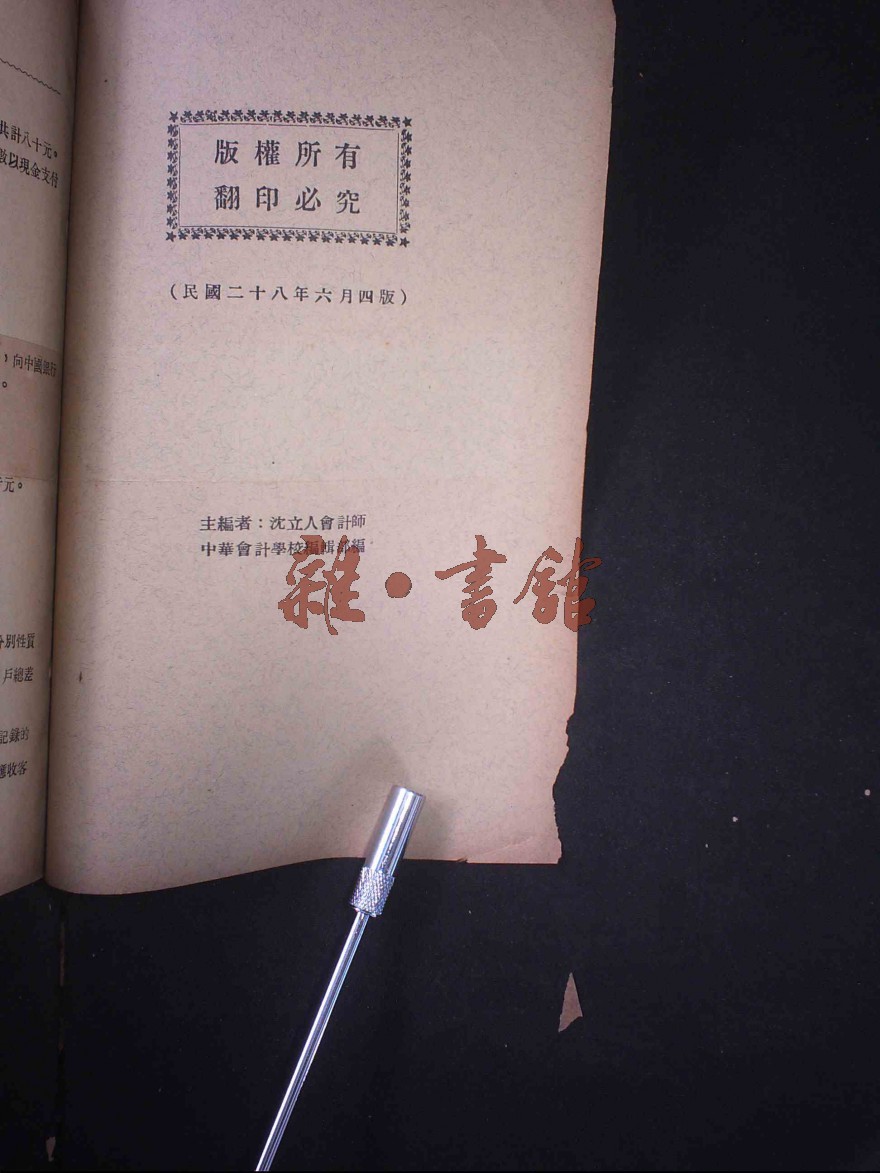 版權所有
翻印必究
(民國二十八年六月四版)
主編者：沈立人會計師
中華會計學校編輯部編
雜·書館
共計八十元。
數以現金支付
，向中國銀行
。
元。
分別性質
戶總差
記錄的
應收客